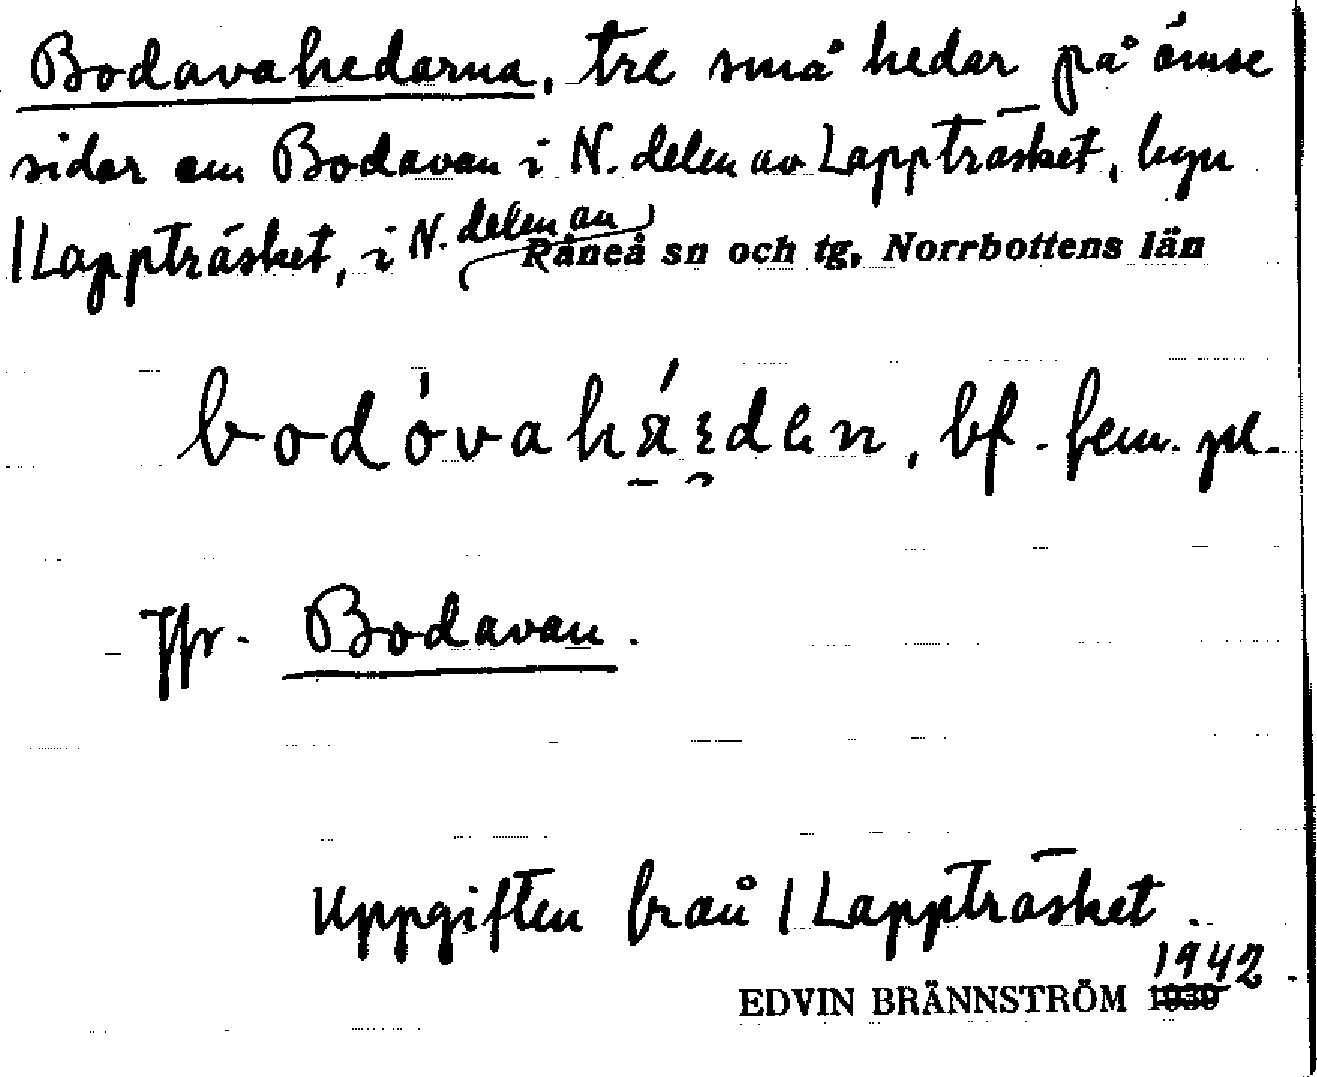 Bodavahedarna, tre små hedar på ömse
sidor om Bodavan i N. delen av Lappträsket, byn
1 Lappträsket, i N. delen av Råneå sn och tg, Norrbottens län
bf. fem. pl.
Jfr. Bodavan.
Uppgiften från 1 Lappträsket.
EDVIN BRÄNNSTRÖM 1942.